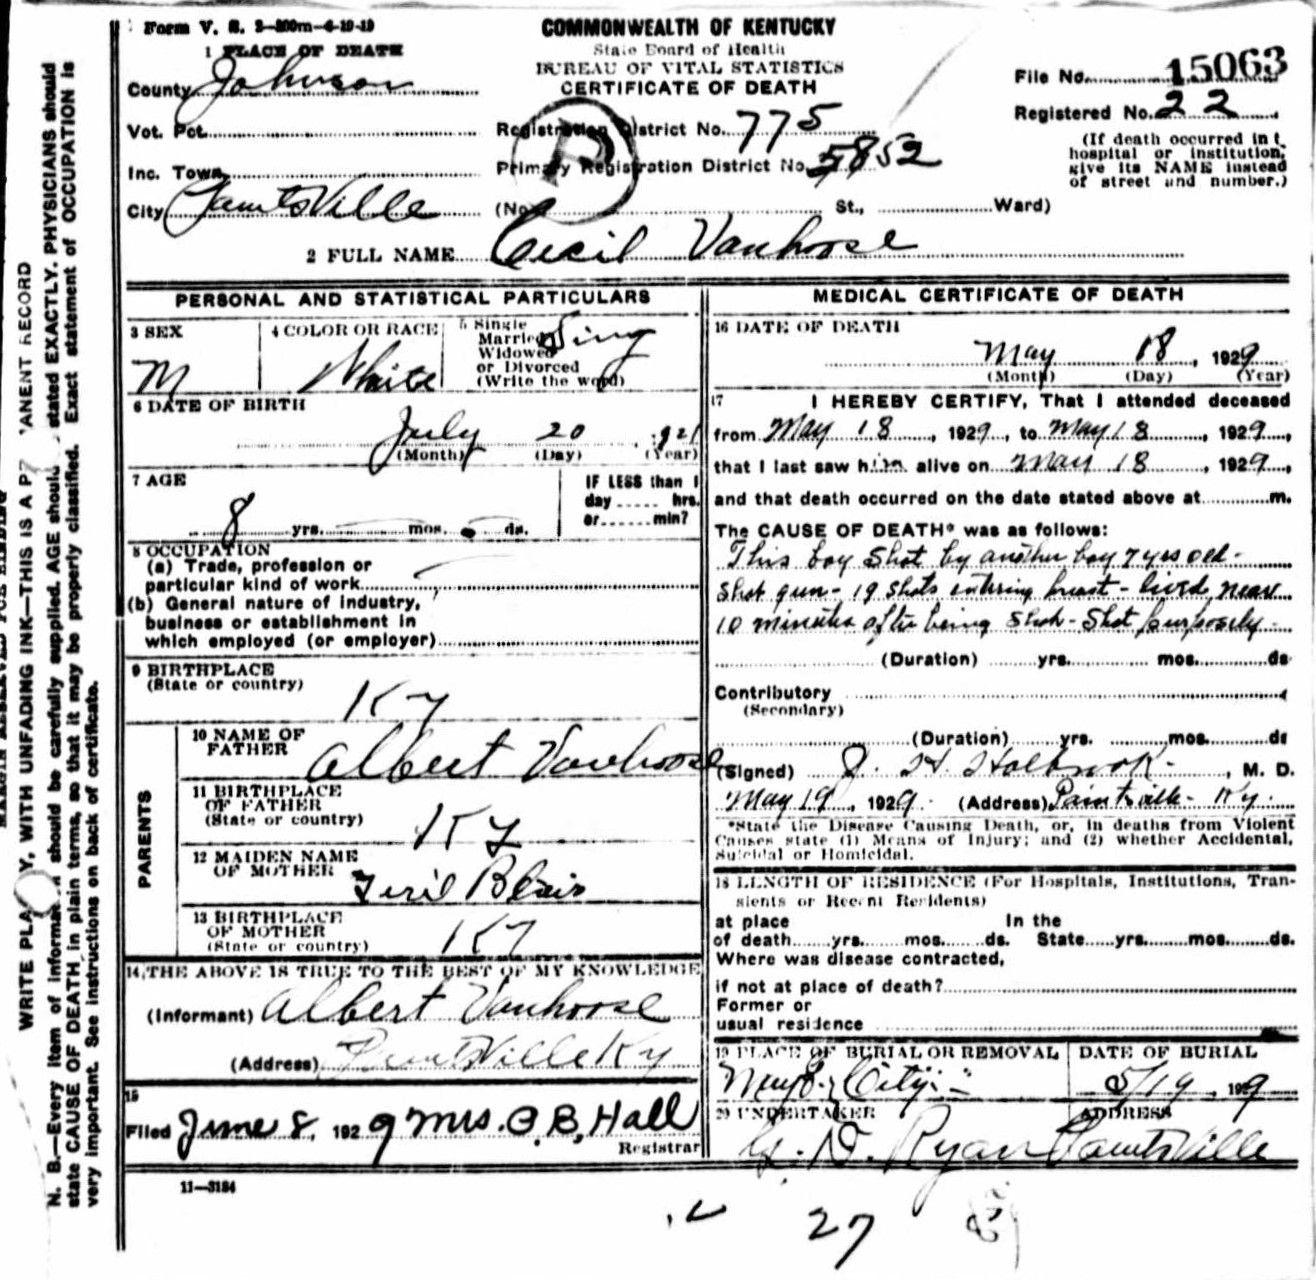 Form V. S. 2—200m—4-19-19
COMMONWEALTH OF KENTUCKY
State Board of Health
BUREAU OF VITAL STATISTICS
CERTIFICATE OF DEATH
File No. 15063
Registered No. 22
(If death occurred in
hospital or institution,
give its NAME instead
of street and number.)
1 PLACE OF DEATH
County Johnson
Vot. Pct.
Inc. Town
City Paintsville
Registration District No. 775
Primary Registration District No. 5852
(No. St., Ward)
2 FULL NAME Cecil Vanhoose
PERSONAL AND STATISTICAL PARTICULARS
3 SEX
M
4 COLOR OR RACE
White
5 Single
Married
Widowed
or Divorced
(Write the word)
Sing
6 DATE OF BIRTH
July 20, 1921
(Month) (Day) (Year)
7 AGE
8 yrs. mos. ds.
IF LESS than 1
day hrs.
or min?
8 OCCUPATION
(a) Trade, profession or
particular kind of work
(b) General nature of industry,
business or establishment in
which employed (or employer)
9 BIRTHPLACE
(State or country)
Ky
PARENTS
10 NAME OF
FATHER
Albert Vanhoose
11 BIRTHPLACE
OF FATHER
(State or country)
Ky
12 MAIDEN NAME
OF MOTHER
Blair
13 BIRTHPLACE
OF MOTHER
(State or country)
Ky
14 THE ABOVE IS TRUE TO THE BEST OF MY KNOWLEDGE
(Informant) Albert Vanhoose
(Address) Paintsville Ky
15
Filed June 8, 1929 Mrs. C. B. Hall
Registrar
11—3184
MEDICAL CERTIFICATE OF DEATH
16 DATE OF DEATH
May 18, 1929
(Month) (Day) (Year)
17 I HEREBY CERTIFY, That I attended deceased
from May 18, 1929, to May 18, 1929,
that I last saw him alive on May 18, 1929,
and that death occurred on the date stated above at m.
The CAUSE OF DEATH* was as follows:
This boy shot by another boy 7 yrs old -
shot gun - 19 shots entering breast - lived near
10 minutes after being shot - shot purposely -
(Duration) yrs. mos. ds
Contributory
(Secondary)
(Duration) yrs. mos. ds
(Signed) J. H. Holbrook, M. D.
May 19, 1929. (Address) Paintsville - Ky.
*State the Disease Causing Death, or, in deaths from Violent
Causes state (1) Means of Injury; and (2) whether Accidental,
Suicidal or Homicidal.
18 LENGTH OF RESIDENCE (For Hospitals, Institutions, Tran-
sients or Recent Residents)
at place In the
of death yrs. mos. ds. State yrs. mos. ds.
Where was disease contracted,
if not at place of death?
Former or
usual residence
19 PLACE OF BURIAL OR REMOVAL
City
DATE OF BURIAL
5/19, 1929
20 UNDERTAKER
D. Ryan
ADDRESS
Paintsville
27
WRITE PLA Y, WITH UNFADING INK—THIS IS A P ANENT RECORD
N. B.—Every item of informa n should be carefully supplied. AGE should stated EXACTLY. PHYSICIANS should
state CAUSE OF DEATH in plain terms, so that it may be properly classified. Exact statement of OCCUPATION is
very important. See instructions on back of certificate.